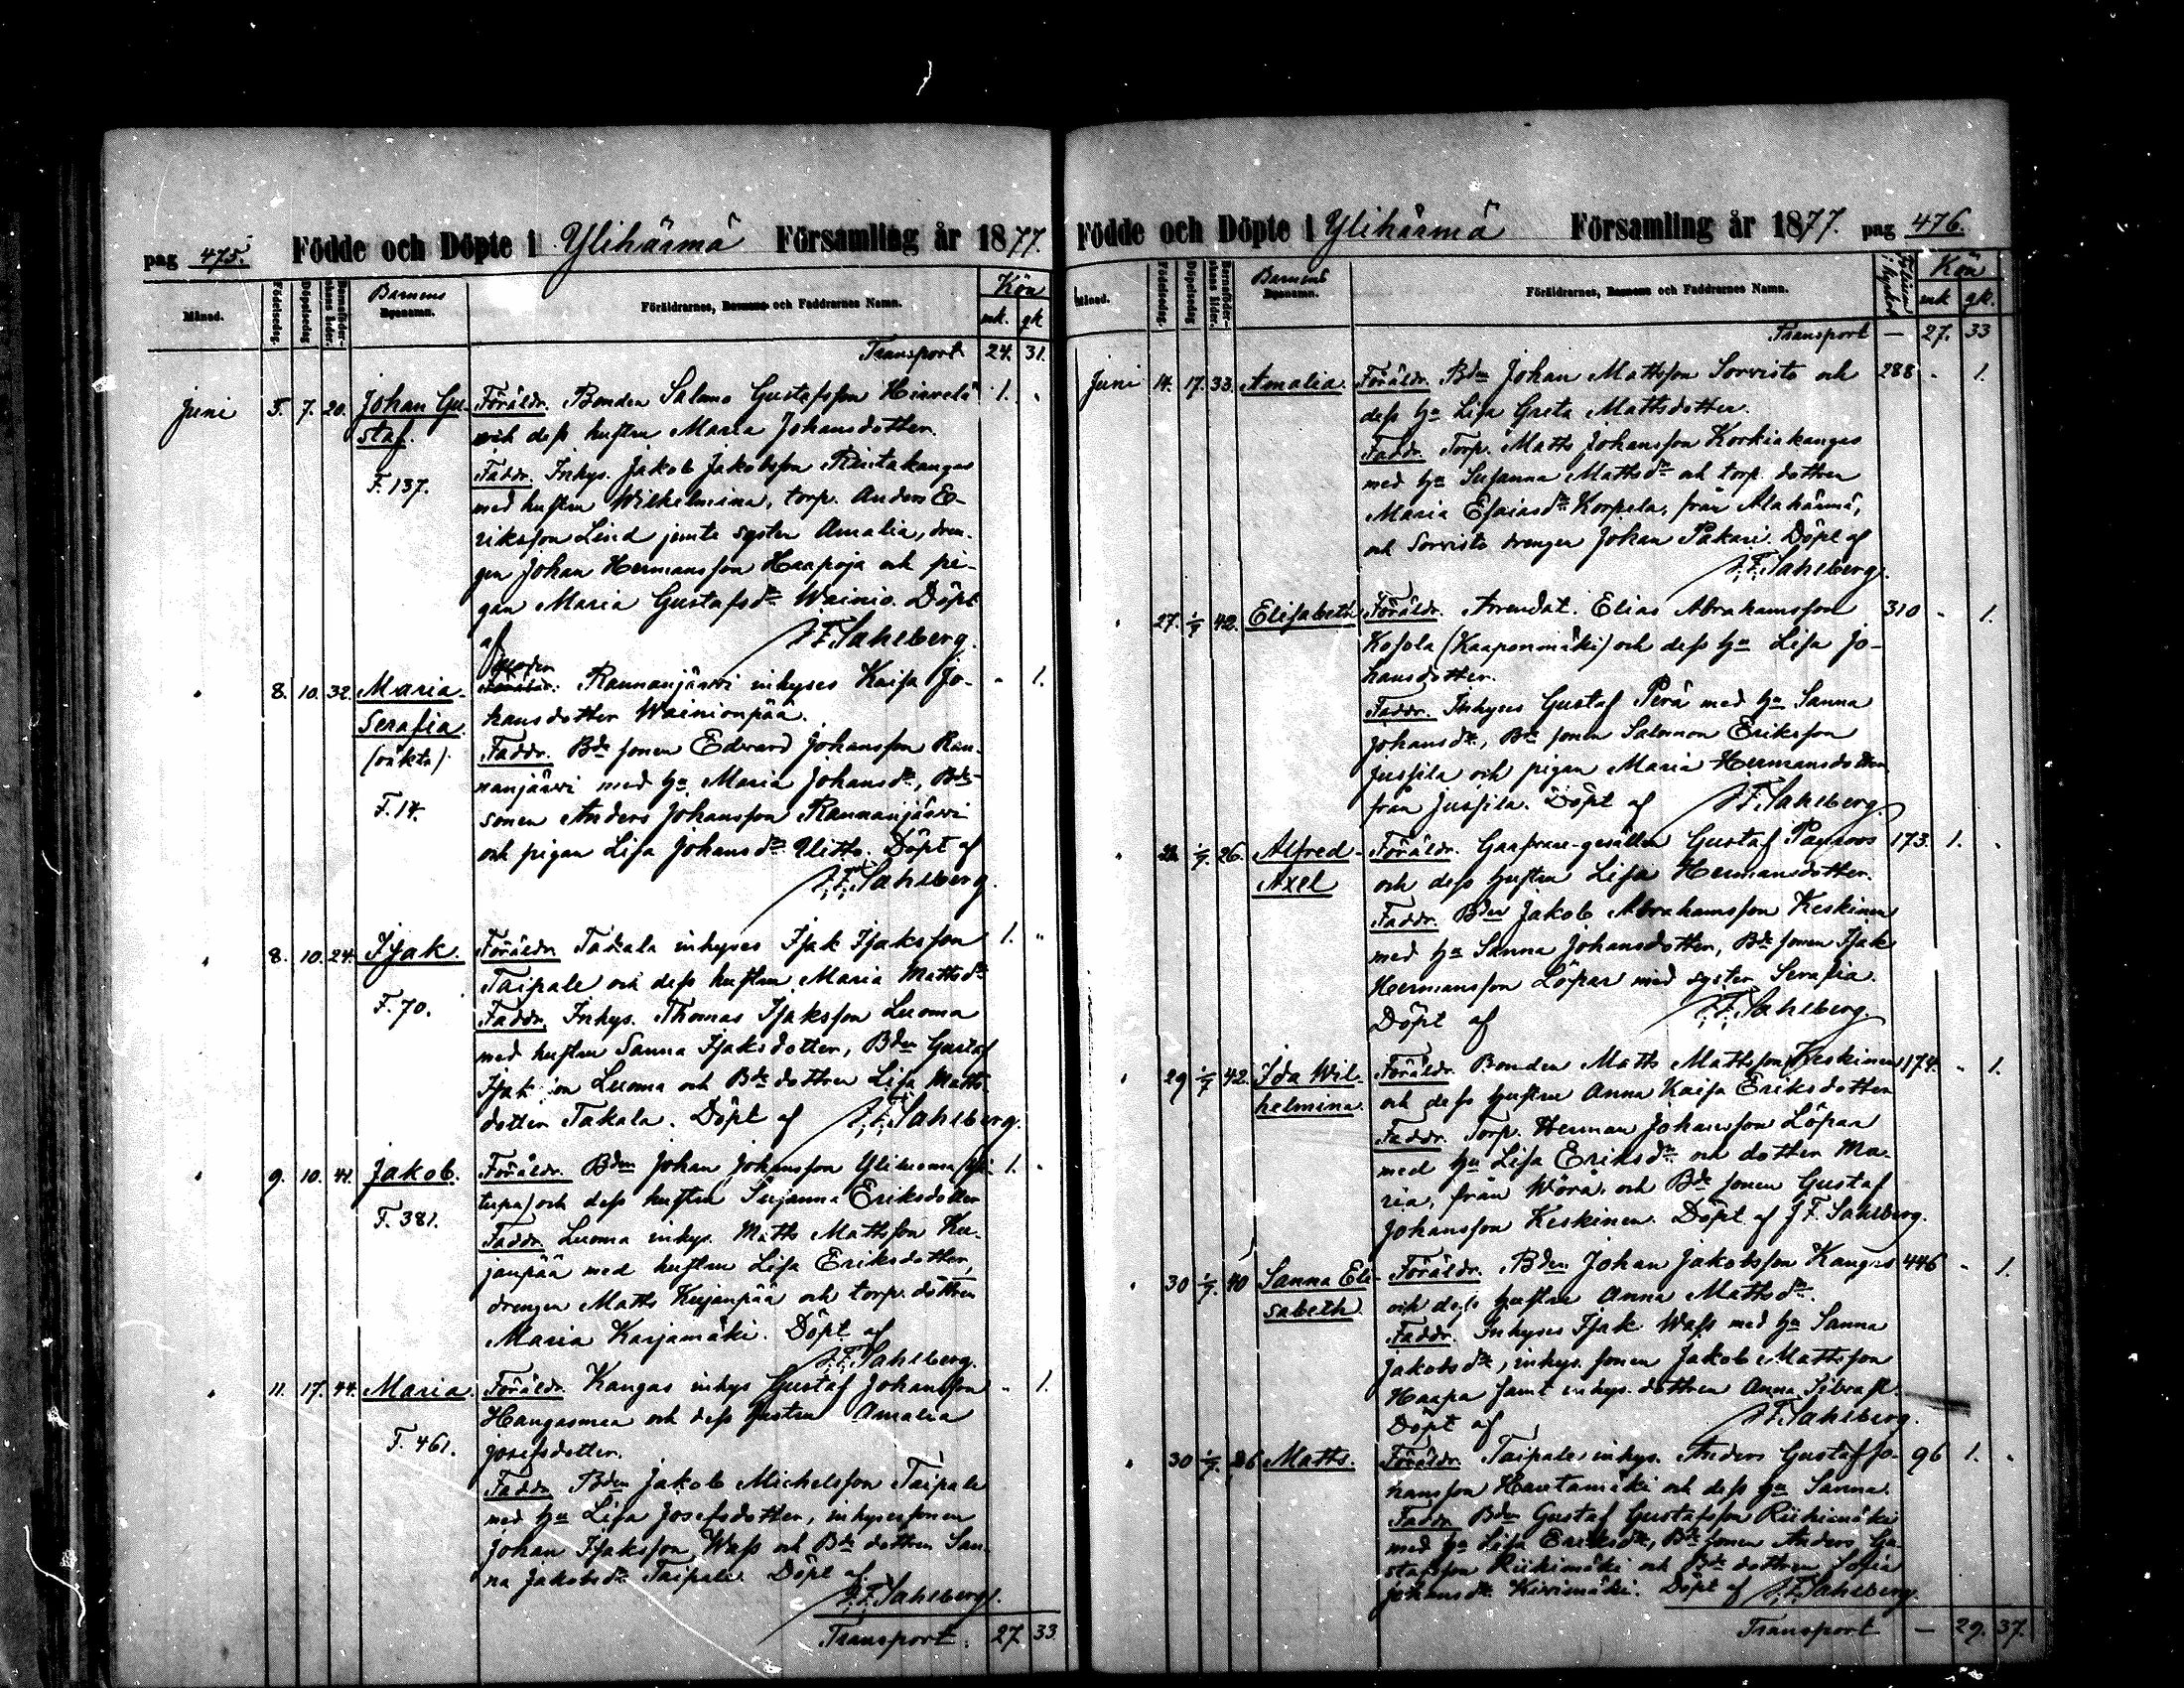 pag 475. Födde och Döpte i Ylihärmä Församling år 1877.
Månad. Födelsedag. Döpelsedag Barnaföderskans ålder. Barnens Föräldrarnes, Barnens och Faddrarnes Namn. Kön
mk. qk
Transport 24. 31.
Juni 5. 7. 20. Johan Gu- Föräldr. Bonden Salomo Gustafsson Hirvelä 1. "
staf. och dess hustru Maria Johansdotter.
Faddr. Inhys. Jakob Jakobsson Rintakangas
F. 137. med hustru Wilhelmina, torp. Anders E-
riksson Lind jemte syster Amalia, dren-
gen Johan Hermansson Haapoja och pi-
gan Maria Gustafsdr Wainio. Döpt
af J. F. Sahlberg.
" 8. 10. 32. Maria Moder Rannanjärvi inhyses Kaisa Jo- " 1.
Serafia hansdotter Wainionpää.
(oäkta) Faddr. Bde sonen Edvard Johansson Ran-
nanjärvi med hu Maria Johansdr, Bde-
F. 14. sonen Anders Johansson Rannanjärvi
och pigan Lisa Johansdr Ylitto. Döpt af
J. F. Sahlberg.
" 8. 10. 24. Isak. Föräldr. Takala inhyses Isak Isaksson 1. "
Taipale och dess hustru Maria Mattsdr
F. 70. Faddr. Inhys. Thomas Isaksson Luoma
med hustru Sanna Isaksdotter, Bden Gustaf
Isaksson Luoma och Bde dottren Lisa Matts-
dotter Takala. Döpt af J. F. Sahlberg.
" 9. 10. 41. Jakob. Föräldr. Bden Johan Johansson Yliluoma (Yli- 1. "
tupa) och dess hustru Susanna Eriksdotter
F. 381. Faddr. Luoma inhys. Matts Mattsson Ku-
janpää med hustru Lisa Eriksdotter,
drengen Matts Kujanpää och torp. dottren
Maria Karjamäki. Döpt af
J. F. Sahlberg.
" 11. 17. 44. Maria. Föräldr. Kangas inhys Gustaf Johansson " 1.
Hangasmaa och dess hustru Amalia
F. 461. Josefsdotter.
Faddr. Bden Jakob Michelsson Taipale
med hu Lisa Josefsdotter, inhysessonen
Johan Isaksson Wass och Bde dottren San-
na Jakobsdr Taipale. Döpt af
J. F. Sahlberg.
Transport. 27. 33
Födde och Döpte i Ylihärmä Församling år 1877. pag 476.
Månad. Födelsedag. Döpelsedag Barnaföderskans ålder. Barnens Föräldrarnes, Barnens och Faddrarnes Namn. Kön
mk qk.
Transport – 27. 33
Juni 14. 17. 33. Amalia. Föräldr. Bdn Johan Mattsson Sorvisto och 288 " 1.
dess hu Lisa Greta Mattsdotter.
Faddr. Torp. Matts Johansson Korkiakangas
med hu Susanna Mattsdr och torp. dottren
Maria Esaiasdr Korpela, från Alahärmä,
och Sorvisto drengen Johan Pakari. Döpt af
J. F. Sahlberg.
" 27. 1/7 42. Elisabeth Föräldr. Arrendat. Elias Abrahamsson 310 " 1.
Kosola (Kaaponmäki) och dess hu Lisa Jo-
hansdotter.
Faddr. Inhyses Gustaf Perä med hu Sanna
Johansdr, Bde sonen Salomon Eriksson
Jussila och pigan Maria Hermansdotter
från Jussila. Döpt af J. F. Sahlberg.
" 28. 1/7. 26. Alfred Föräldr. Garfvare-gesällen Gustaf 173. 1. "
Axel och dess hustru Lisa Hermansdotter.
Faddr. Bden Jakob Abrahamsson Keskinen
med hu Sanna Johansdotter, Bde sonen Isak
Hermansson Löpar med syster Serafia.
Döpt af J. F. Sahlberg.
" 29 1/7 42. Ida Wil- Föräldr. Bonden Matts Mattsson (Keskinen) 174. " 1.
helmina. och dess hustru Anna Kaisa Eriksdotter
Faddr. Torp. Herman Johansson Löpar
med hu Lisa Eriksdr och dotter Ma-
ria, från Wörå, och Bde sonen Gustaf
Johansson Keskinen. Döpt af J F. Sahlberg.
" 30 1/7. 40 Sanna Eli- Föräldr. Bden Johan Jakobsson Kangas 446 " 1.
sabeth och dess hustru Anna Mattsdr.
Faddr. Inhyses Isak Wass med hu Sanna
Jakobsdr, inhys. sonen Jakob Mattsson
Haapa samt inhys. dottren Anna
Döpt af J. F. Sahlberg.
" 30 1/7. 26 Matts. Föräldr. Taipale inhys. Anders Gustaf Jo- 96 1. "
hansson Hautamäki och dess hu Sanna.
Faddr. Bden Gustaf Gustafsson Riihimäki
med hu Lisa Eriksdr, Bde sonen Anders Gu-
stafsson Riihimäki och Bde dottren Sofia
Johansdr Kivimäki. Döpt af J. F. Sahlberg.
Transport – 29. 37.